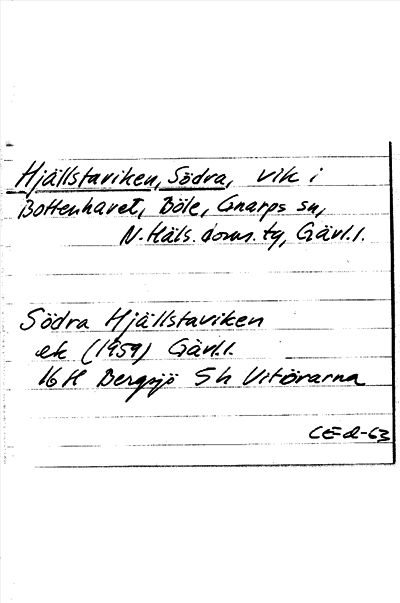 Hjällstaviken, Södra, vik i
Bottenhavet, Böle, Gnarps sn,
N. Häls. doms. tg, Gävl.l.
Södra Hjällstaviken
ek (1959) Gävl.l.
16H Bergsjö 5h Vitörarna
CEal-63